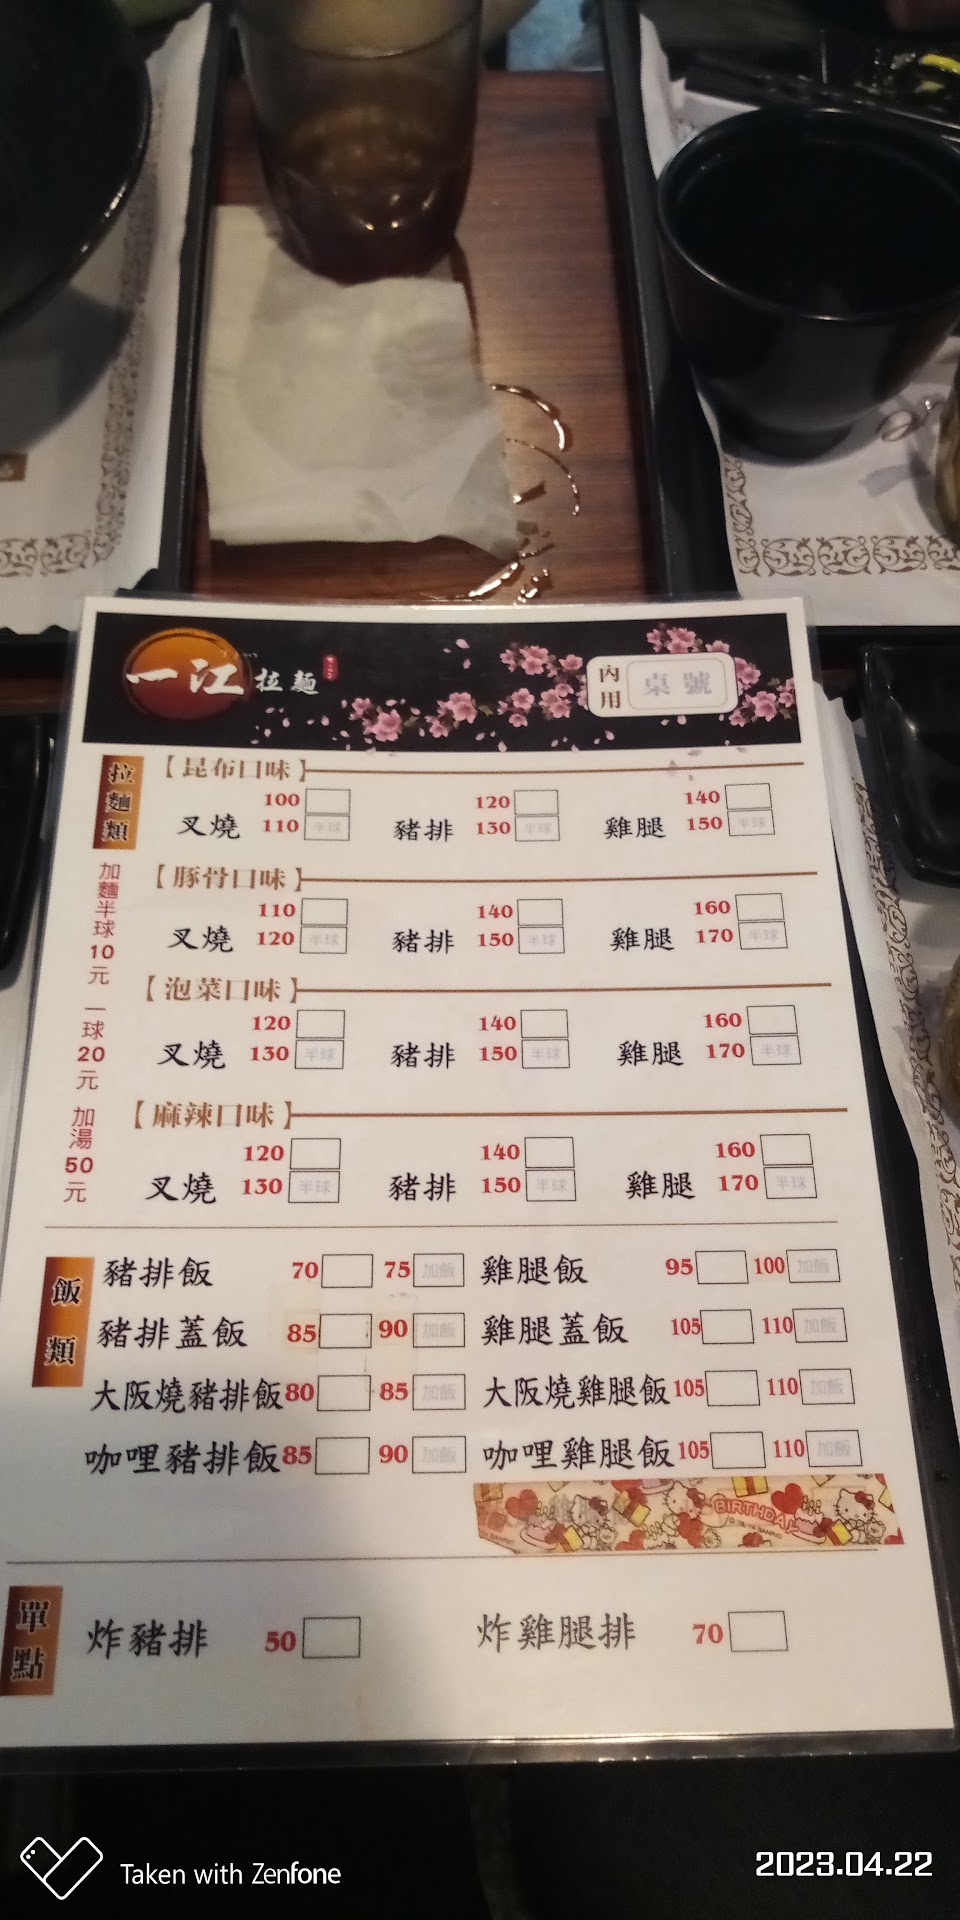 一江拉麵
內用 桌號
拉麵類
【昆布口味】
100 120 140
叉燒 110 半球 豬排 130 半球 雞腿 150 半球
【豚骨口味】
110 140 160
叉燒 120 半球 豬排 150 半球 雞腿 170 半球
【泡菜口味】
120 140 160
叉燒 130 半球 豬排 150 半球 雞腿 170 半球
【麻辣口味】
120 140 160
叉燒 130 半球 豬排 150 半球 雞腿 170 半球
加麵半球10元 一球20元 加湯50元
飯類
豬排飯 70 75 加飯 雞腿飯 95 100 加飯
豬排蓋飯 85 90 加飯 雞腿蓋飯 105 110 加飯
大阪燒豬排飯 80 85 加飯 大阪燒雞腿飯 105 110 加飯
咖哩豬排飯 85 90 加飯 咖哩雞腿飯 105 110 加飯
BIRTHDAY
單點
炸豬排 50 炸雞腿排 70
Taken with Zenfone
2023.04.22